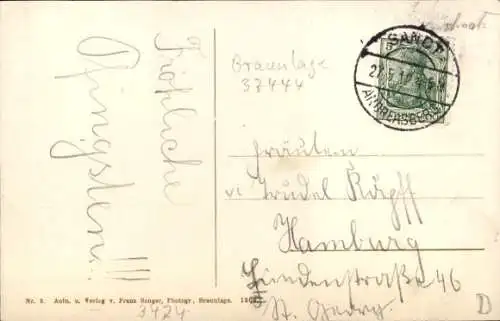 Fröhliche
Pfingsten!!!
Braunlage
33444
SANCT
ANDREASBERG
Fräulein
Trudel
Hamburg
Lindenstraße 46
St. Georg.
Nr. 3. Aufn. u. Verlag v. Franz Sanger, Photogr., Braunlage.
3424
D